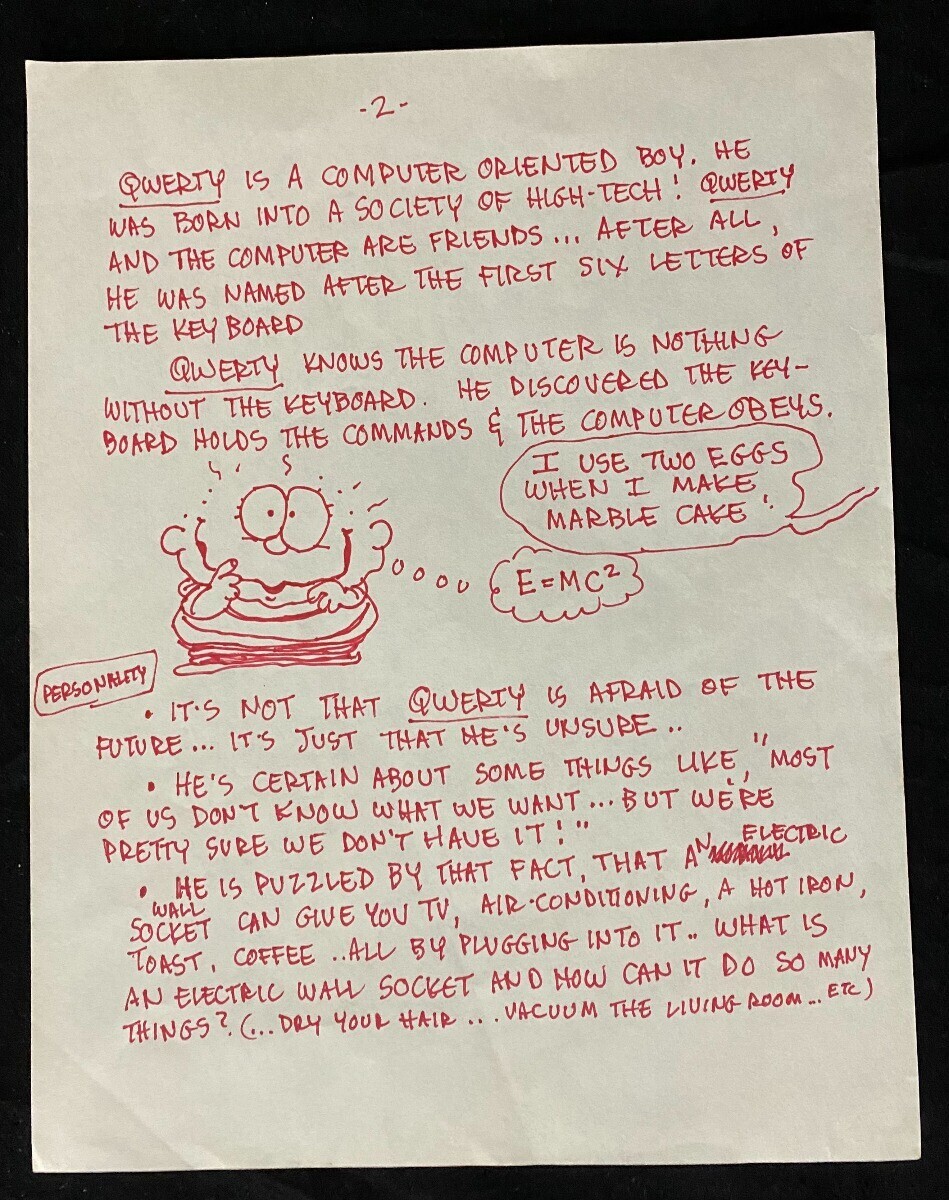 -2-
QWERTY IS A COMPUTER ORIENTED BOY. HE
WAS BORN INTO A SOCIETY OF HIGH-TECH! QWERTY
AND THE COMPUTER ARE FRIENDS... AFTER ALL,
HE WAS NAMED AFTER THE FIRST SIX LETTERS OF
THE KEYBOARD
QWERTY KNOWS THE COMPUTER IS NOTHING
WITHOUT THE KEYBOARD. HE DISCOVERED THE KEY-
BOARD HOLDS THE COMMANDS & THE COMPUTER OBEYS.
I USE TWO EGGS
WHEN I MAKE
MARBLE CAKE!
E=MC²
PERSONALITY
• IT'S NOT THAT QWERTY IS AFRAID OF THE
FUTURE... IT'S JUST THAT HE'S UNSURE..
• HE'S CERTAIN ABOUT SOME THINGS LIKE, "MOST
OF US DON'T KNOW WHAT WE WANT... BUT WE'RE
PRETTY SURE WE DON'T HAVE IT!"
• HE IS PUZZLED BY THAT FACT, THAT AN ELECTRIC
WALL
SOCKET CAN GIVE YOU TV, AIR-CONDITIONING, A HOT IRON,
TOAST, COFFEE ..ALL BY PLUGGING INTO IT.. WHAT IS
AN ELECTRIC WALL SOCKET AND HOW CAN IT DO SO MANY
THINGS? (...DRY YOUR HAIR ... VACUUM THE LIVING ROOM... ETC)